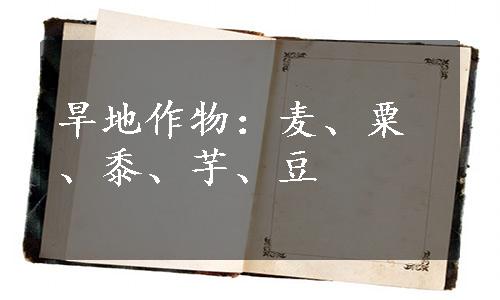 旱地作物：麦、粟
、黍、芋、豆